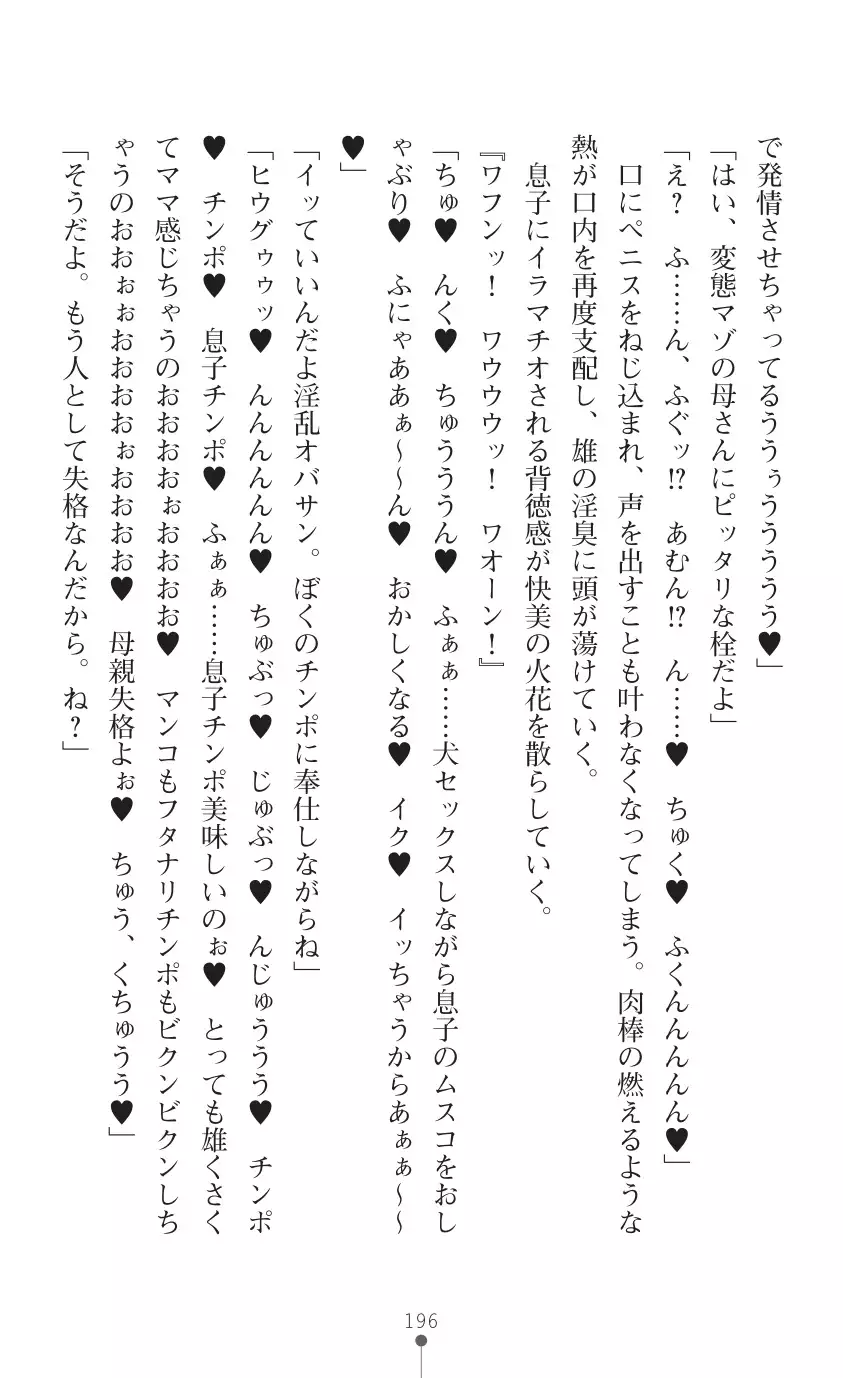 で発情させちゃってるううぅうううう♥」
「はい、変態マゾの母さんにピッタリな栓だよ」
「え？　ふ……ん、ふぐッ!?　あむん!?　ん……♥　ちゅく♥　ふくんんんんん♥」
　口にペニスをねじ込まれ、声を出すことも叶わなくなってしまう。肉棒の燃えるような
熱が口内を再度支配し、雄の淫臭に頭が蕩けていく。
　息子にイラマチオされる背徳感が快美の火花を散らしていく。
『ワフンッ！　ワウウウッ！　ワオーン！』
「ちゅ♥　んく♥　ちゅううん♥　ふぁぁ……犬セックスしながら息子のムスコをおし
ゃぶり♥　ふにゃああぁ～～ん♥　おかしくなる♥　イク♥　イッちゃうからあぁぁ～～
♥」
「イッていいんだよ淫乱オバサン。ぼくのチンポに奉仕しながらね」
「ヒウグゥゥッ♥　んんんんんん♥　ちゅぶっ♥　じゅぶっ♥　んじゅううう♥　チンポ
♥　チンポ♥　息子チンポ♥　ふぁぁ……息子チンポ美味しいのぉ♥　とっても雄くさく
てママ感じちゃうのおおおおぉおおおお♥　マンコもフタナリチンポもビクンビクンしち
ゃうのおおぉぉおおおおぉおおおお♥　母親失格よぉ♥　ちゅう、くちゅうう♥」
「そうだよ。もう人として失格なんだから。ね？」
196